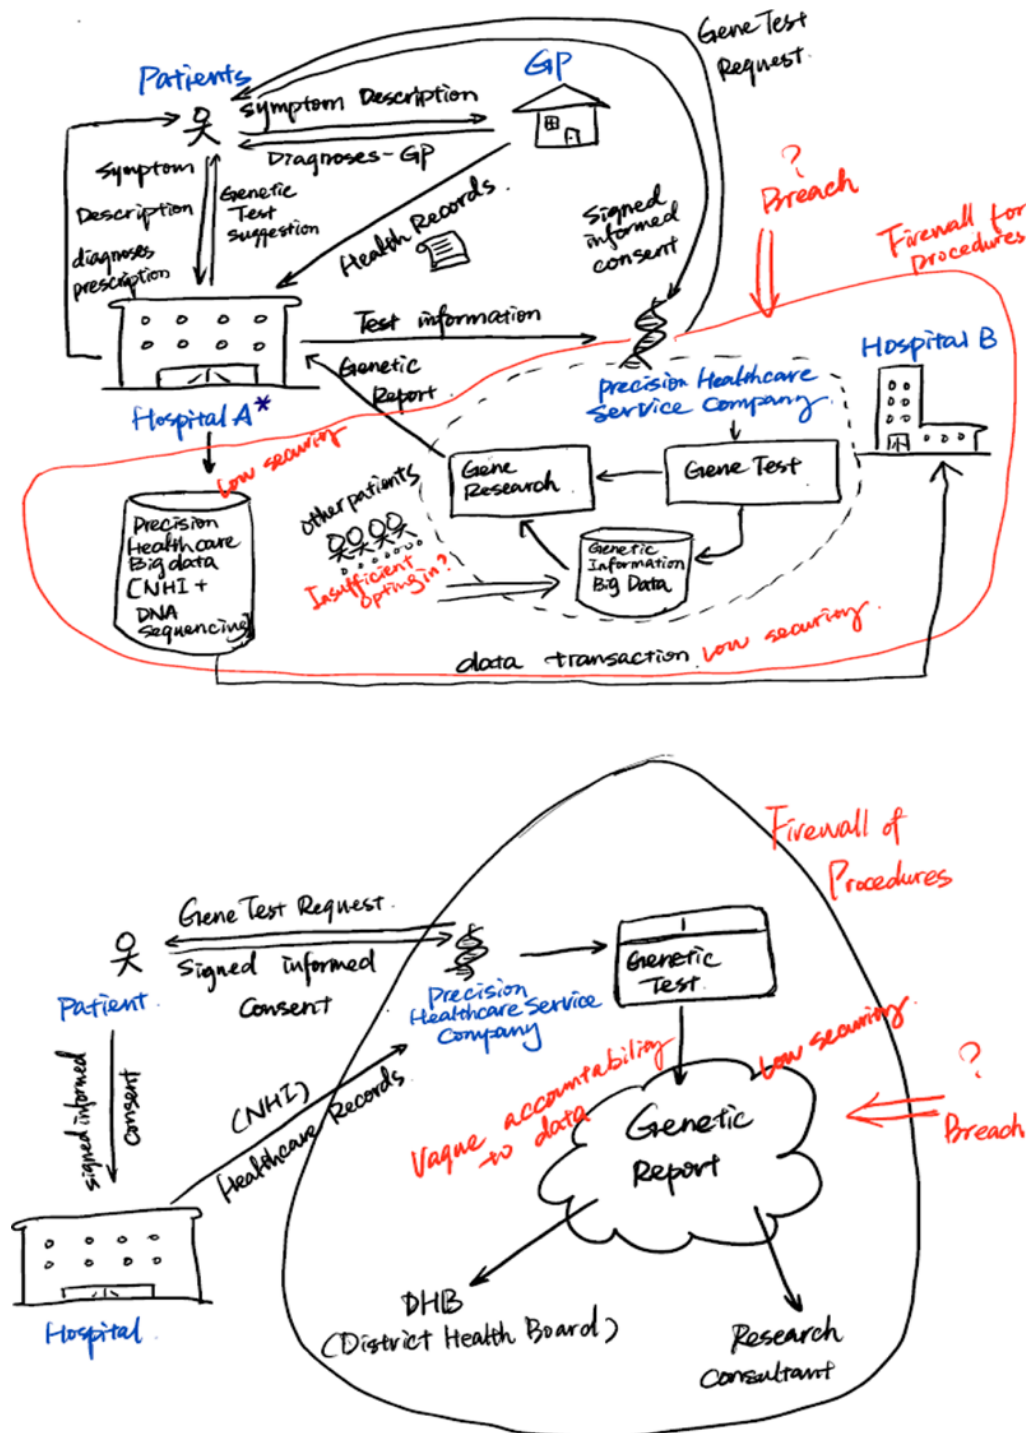 Gene Test
Request.
Patients
GP
Symptom Description
Diagnoses-GP
Symptom
Description
diagnoses
prescription
Genetic
Test
suggestion
Health Records.
Signed
informed
consent
?
Breach
Firewall for
procedures
Test information
Genetic
Report
Hospital A*
Precision Healthcare
Service Company
Hospital B
Low security
Gene
Research
Gene Test
other patients
Insufficient
opting in?
Genetic
Information
Big Data
Precision
Healthcare
Big data
(NHI +
DNA
sequencing)
data transaction. Low security.
Firewall of
Procedures
Gene Test Request.
Signed informed
Consent
Patient.
Precision
Healthcare Service
Company
Genetic
Test.
signed informed
consent
(NHI)
Healthcare Records.
Vague accountability
to data
Low security.
?
Breach
Genetic
Report
Hospital.
DHB
(District Health Board)
Research
Consultant